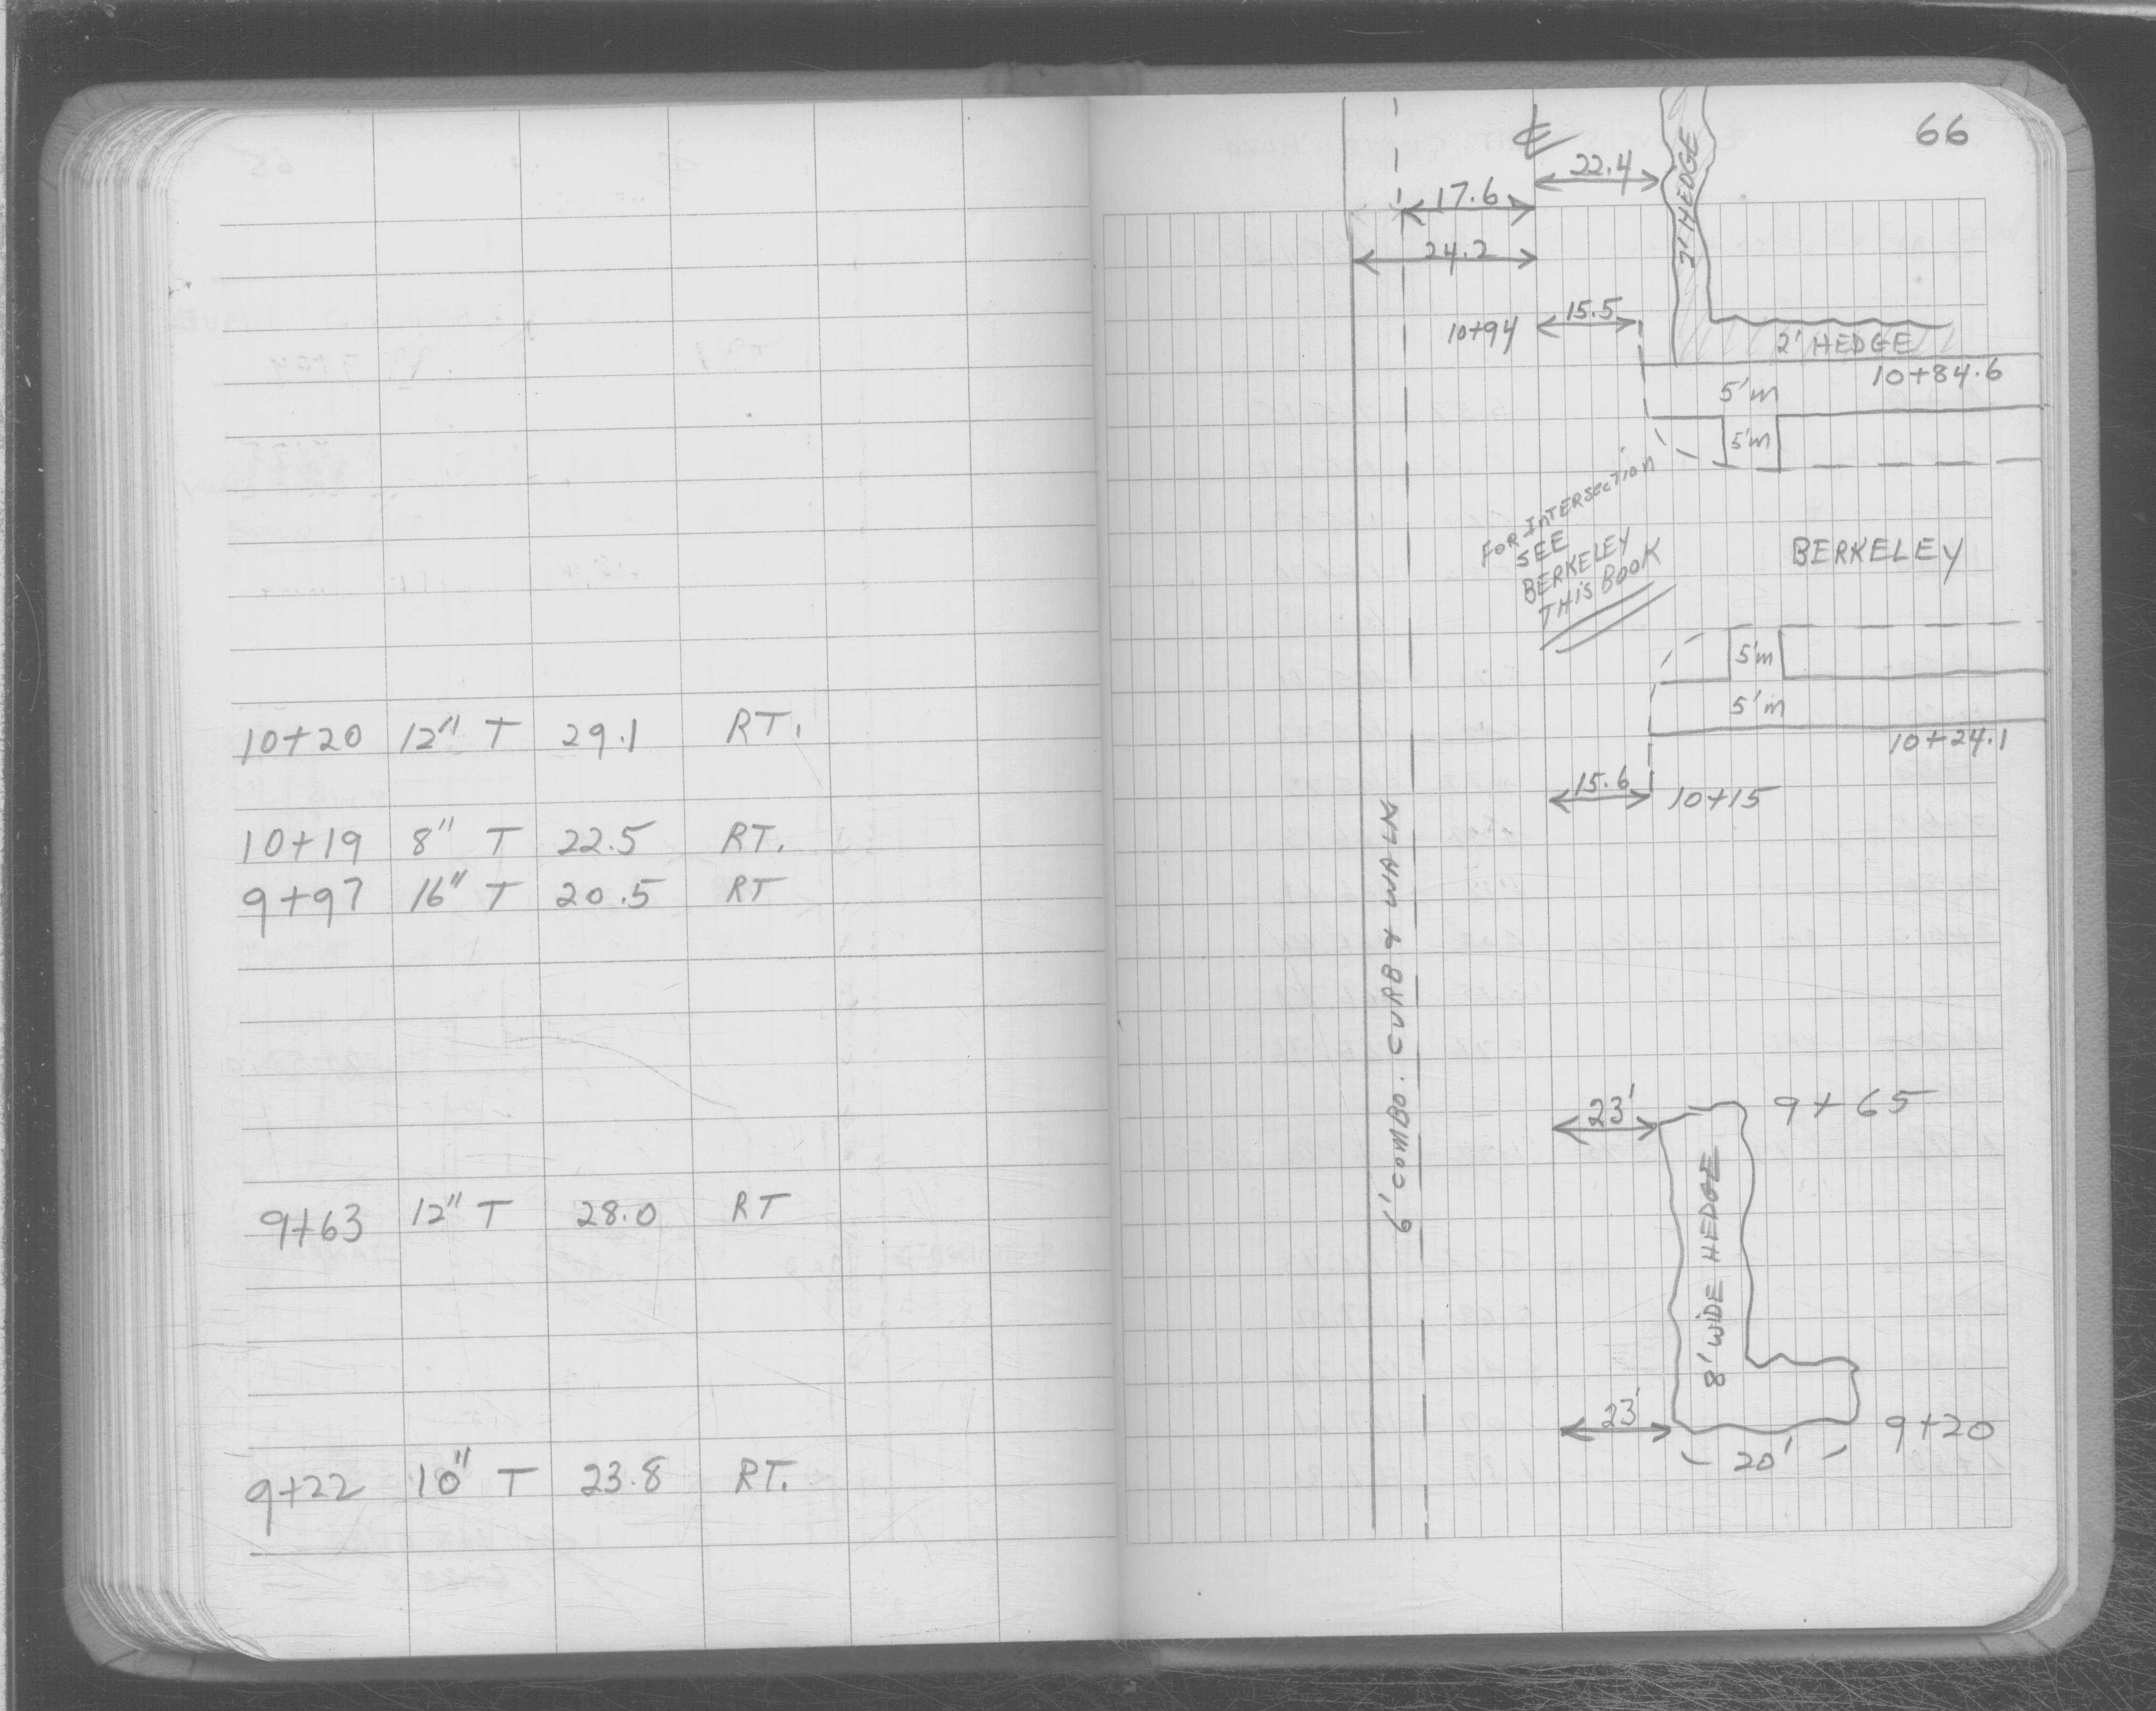 10+20 12" T 29.1 RT.
10+19 8" T 22.5 RT.
9+97 16" T 20.5 RT
9+63 12" T 28.0 RT
9+22 10" T 23.8 RT.
66
℄
22.4
17.6
24.2
2' HEDGE
15.5
10+94
2' HEDGE
10+84.6
5'm
5'm
FOR INTERSECTION
SEE
BERKELEY
THIS BOOK
BERKELEY
5'm
5'm
10+24.1
15.6
10+15
6' COMBO. CURB & WALK
23'
9+65
8' WIDE HEDGE
23'
9+20
20'